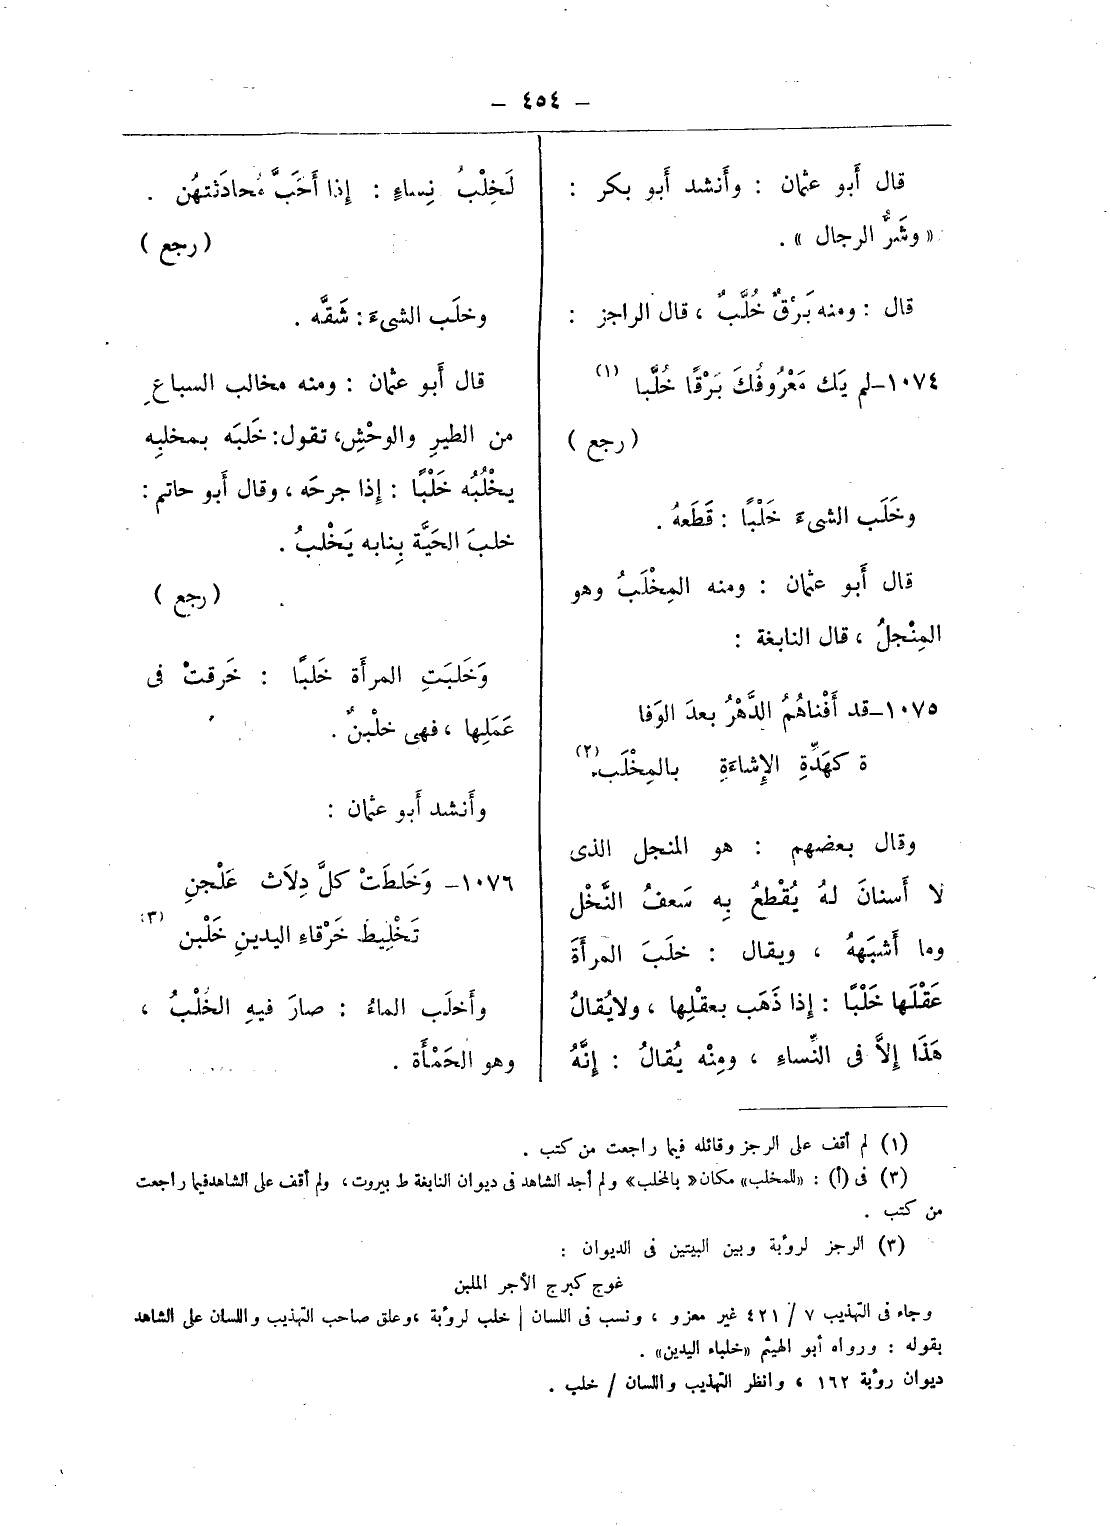 – ٤٥٤ –
قال أَبو عثمان : وأَنشد أَبو بكر :
« وشَرُّ الرجال » .
قال : ومنه بَرْقٌ خُلَّبٌ ، قال الراجز :
١٠٧٤–لم يَك مَعْرُوفُكَ بَرْقًا خُلَّبا (١)
( رجع )
وخَلَب الشىءَ خَلْبًا : قَطَعهُ .
قال أَبو عثمان : ومنه المِخْلَبُ وهو
المِنْجلُ ، قال النابغة :
١٠٧٥–قد أَفْناهُمُ الدَّهْرُ بعدَ الوَفا
ة كهَدِّةِ الإِشاءَةِ بالمِخْلَب (٢)
وقال بعضهم : هو المنجل الذى
لا أَسنانَ لهُ يُقْطعُ بِه سَعفُ النَّخْل
وما أَشبَههُ ، ويقال : خلَبَ المرأَةَ
عَقْلَها خَلْبًا : إِذا ذَهَب بعقْلِها ، ولايُقالُ
هَذَا إِلاَّ فى النِّساءِ ، ومِنْه يُقالُ : إِنَّهُ
لَخِلْبُ نِساءٍ : إِذا أَحَبَّ مُحادَثتهُن .
( رجع )
وخلَب الشىءَ : شَقَّه .
قال أَبو عثمان : ومنه مخالب السباعِ
من الطيرِ والوحْشِ، تقول: خَلبَه بمخلبِه
يخْلُبُه خَلْبًا : إِذا جرحَه ، وقال أَبو حاتم :
خلبَ الحَيَّة بِنابه يَخْلبُ .
( رجع )
وَخَلبَتِ المرأَة خَلبًا : خَرقتْ فى
عَمَلِها ، فهى خلْبنٌ .
وأَنشد أَبو عثمان :
١٠٧٦– وَخَلطَتْ كلَّ دِلاَث عَلْجنِ
تَخْلِيطَ خَرْقاءِ اليدينِ خَلْبن (٣)
وأَخلَب الماءُ : صارَ فيهِ الخُلْبُ ،
وهو الحَمْأَة .
(١) لم أقف على الرجز وقائله فيما راجعت من كتب .
(٢) فى (أ) : «للمخلب» مكان« بالمخلب» ولم أجد الشاهد فى ديوان النابغة ط بيروت، ولم أقف على الشاهدفيما راجعت
من كتب .
(٣) الرجز لرؤبة وبين البيتين فى الديوان :
غوج كبرج الأجر الملبن
وجاء فى التهذيب ٧ / ٤٢١ غير معزو ، ونسب فى اللسان / خلب لرؤبة ،وعلق صاحب التهذيب واللسان على الشاهد
بقوله : ورواه أبو الهيثم «خلباء اليدين» .
ديوان رؤبة ١٦٢ ، وانظر التهذيب واللسان / خلب .